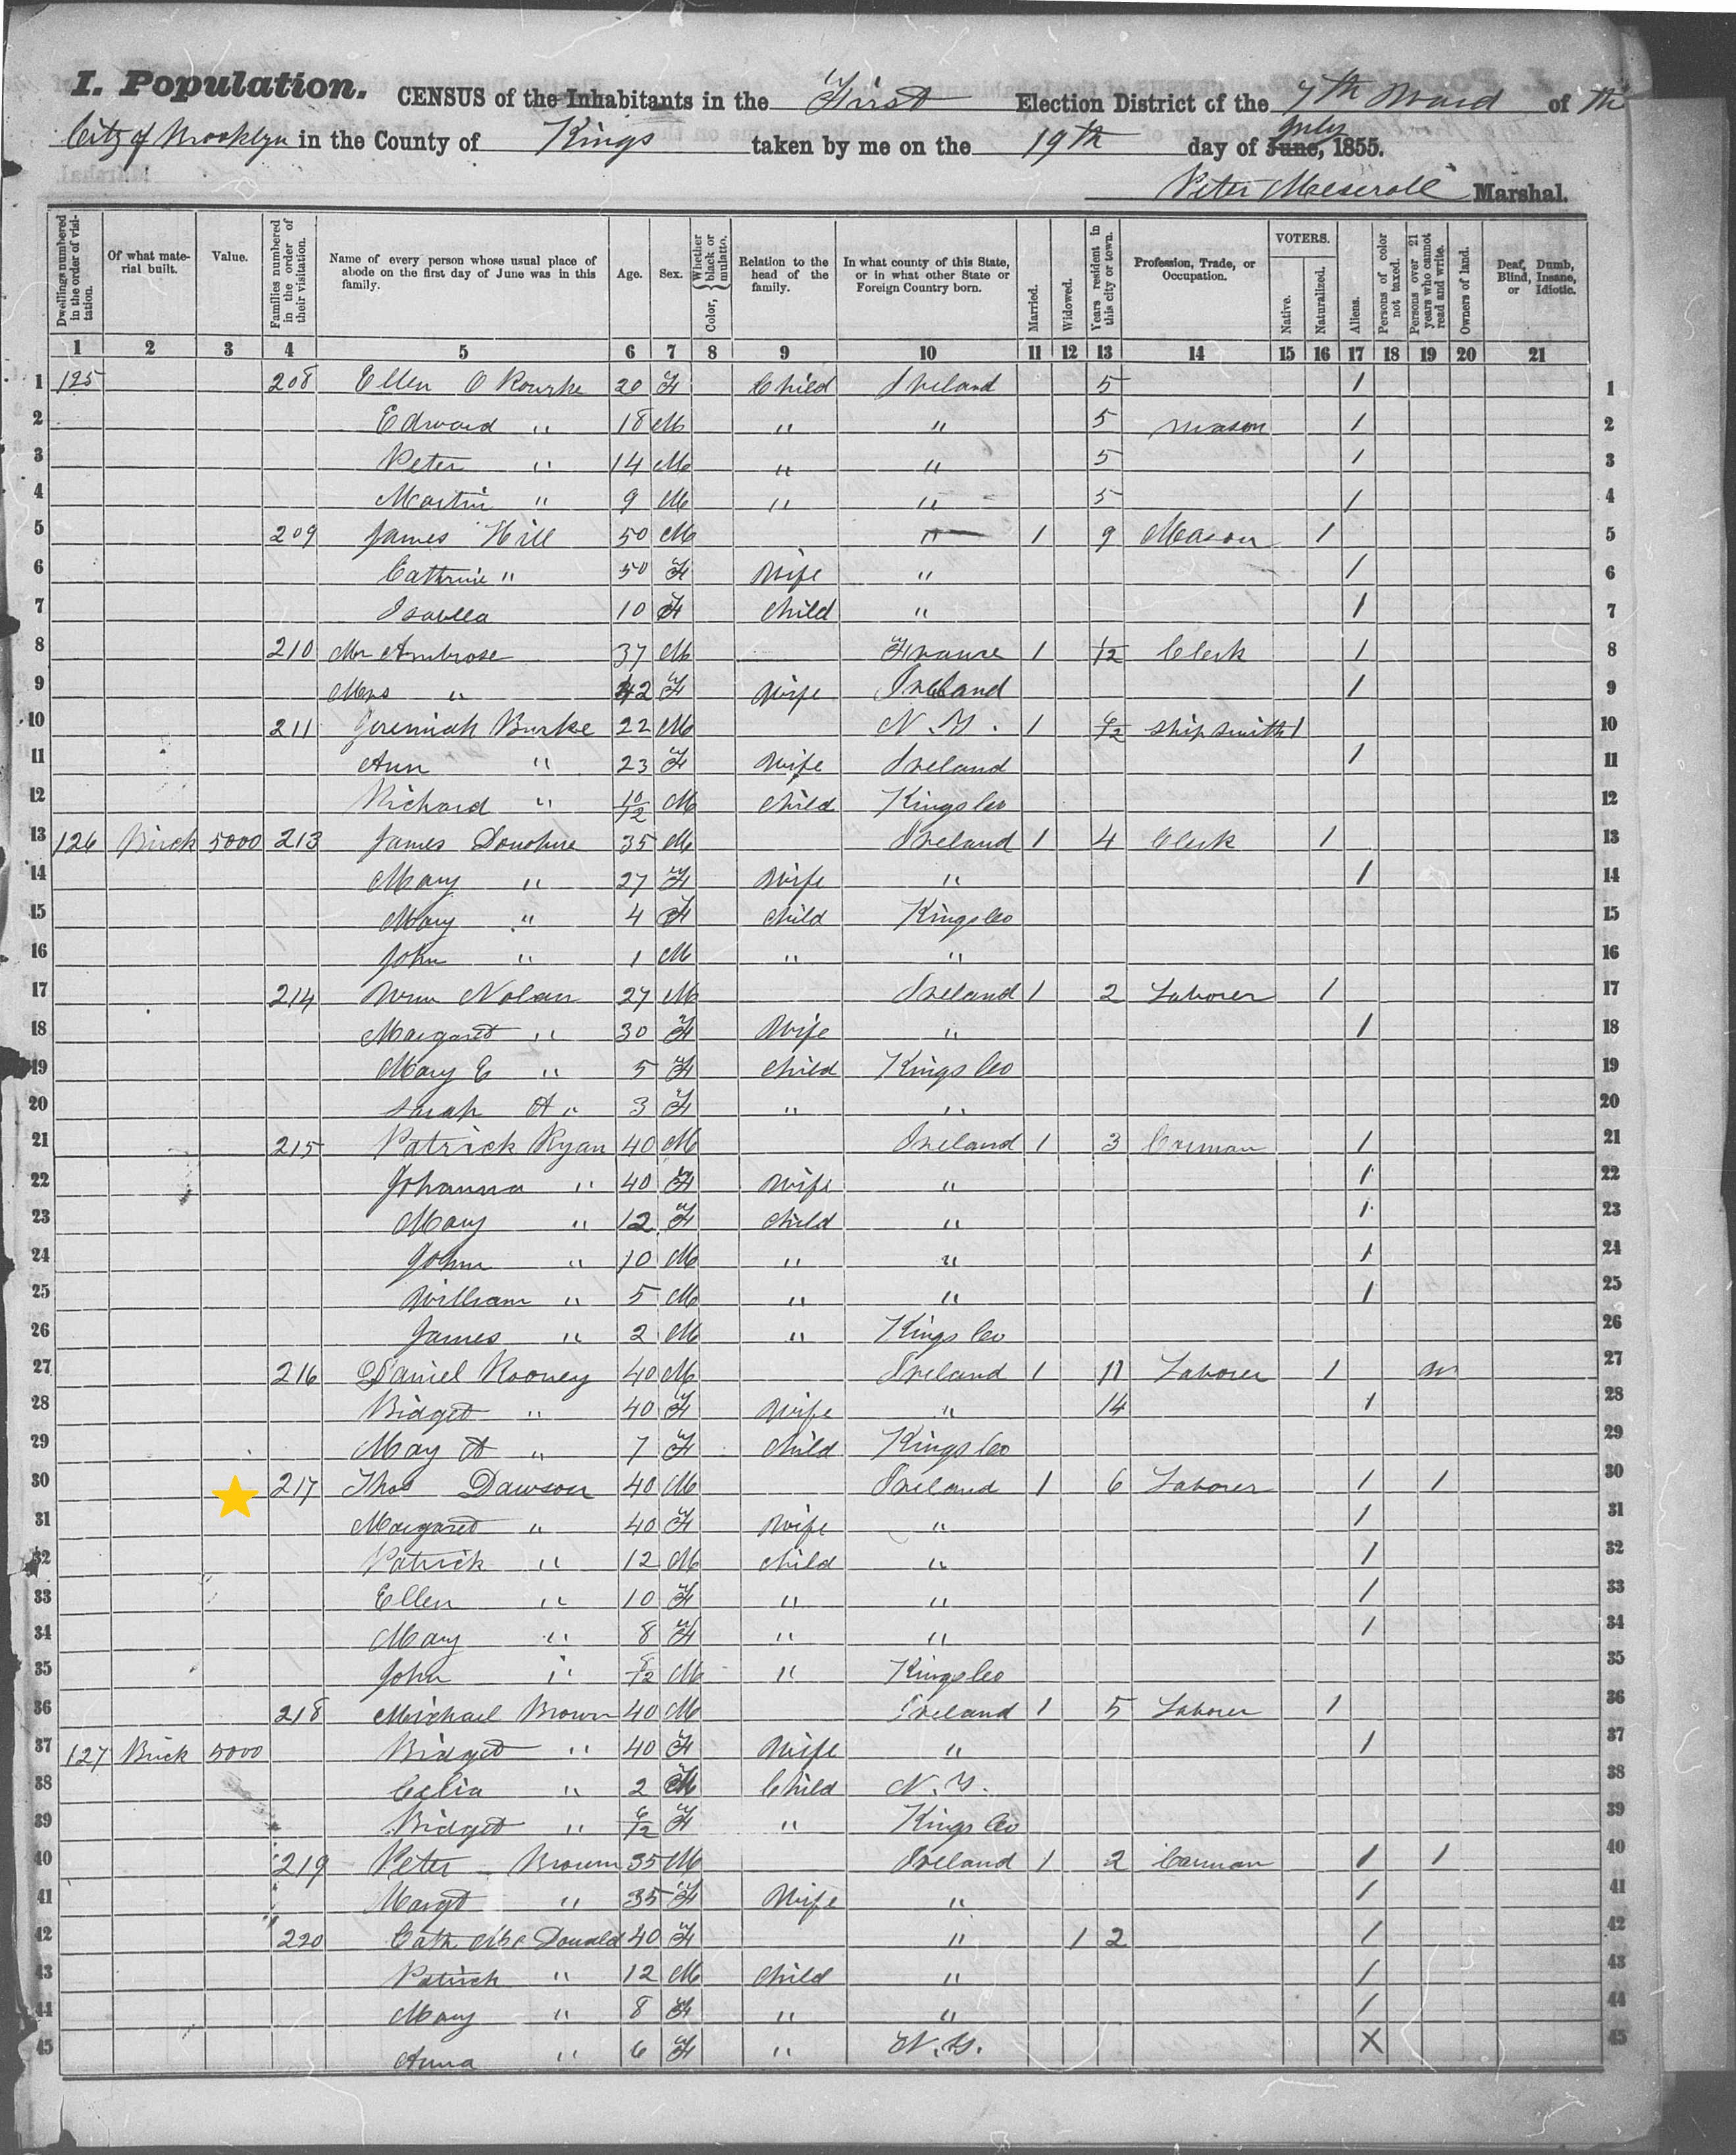 I. Population. CENSUS of the Inhabitants in the First Election District of the 7th Ward of the
City of Brooklyn in the County of Kings taken by me on the 19th day of June, July 1855.
Peter Meserole Marshal.
Dwellings numbered in the order of visitation. Of what material built. Value. Families numbered in the order of their visitation. Name of every person whose usual place of abode on the first day of June was in this family. Age. Sex. Color, Whether black or mulatto. Relation to the head of the family. In what county of this State, or in what other State or Foreign Country born. Married. Widowed. Years resident in this city or town. Profession, Trade, or Occupation. VOTERS. Native. Naturalized. Aliens. Persons of color not taxed. Persons over 21 years who cannot read and write. Owners of land. Deaf, Dumb, Blind, Insane, or Idiotic.
1 2 3 4 5 6 7 8 9 10 11 12 13 14 15 16 17 18 19 20 21
1 125 208 Ellen O Rourke 20 F Child Ireland 5 1 1
2 Edward " 18 M " " 5 Mason 1 2
3 Peter " 14 M " " 5 1 3
4 Martin " 9 M " " 5 1 4
5 209 James Hill 50 M " 1 9 Mason 1 5
6 Cathrine " 50 F Wife " 1 6
7 Isabella 10 F Child " 1 7
8 210 Mr Ambrose 37 M France 1 1/12 Clerk 1 8
9 Mrs " 42 F Wife Ireland 1 9
10 211 Jeremiah Burke 22 M N.Y. 1 6/12 Ship Smith 1 10
11 Ann " 23 F Wife Ireland 1 11
12 Richard " 10/12 M Child Kings Co 12
13 126 Brick 5000 213 James Donohue 35 M Ireland 1 4 Clerk 1 13
14 Mary " 27 F Wife " 1 14
15 Mary " 4 F Child Kings Co 15
16 John " 1 M " " 16
17 214 Wm Nolan 27 M Ireland 1 2 Laborer 1 17
18 Margaret " 30 F Wife " 1 18
19 Mary E " 5 F Child Kings Co 19
20 Sarah A " 3 F " " 20
21 215 Patrick Ryan 40 M Ireland 1 3 Carman 1 21
22 Johanna " 40 F Wife " 1 22
23 Mary " 12 F Child " 1 23
24 John " 10 M " " 1 24
25 William " 5 M " " 1 25
26 James " 2 M " Kings Co 26
27 216 Daniel Rooney 40 M Ireland 1 11 Laborer 1 27
28 Bridget " 40 F Wife " 14 1 28
29 May A " 7 F Child Kings Co 29
30 217 Thos Dawson 40 M Ireland 1 6 Laborer 1 1 30
31 Margaret " 40 F Wife " 1 31
32 Patrick " 12 M Child " 1 32
33 Ellen " 10 F " " 1 33
34 Mary " 8 F " " 1 34
35 John " M " Kings Co 35
36 218 Michael Brown 40 M Ireland 1 5 Laborer 1 36
37 127 Brick 5000 Bridget " 40 F Wife " 1 37
38 Celia " 2 Child N.Y. 38
39 Bridget " 6/12 F " Kings Co 39
40 219 Peter Brown 35 M Ireland 1 2 Carman 1 1 40
41 Margt " 35 F Wife " 1 41
42 220 Cath Mc Donald 40 F " 1 2 1 42
43 Patrick " 12 M Child " 1 43
44 Mary " 8 F " " 1 44
45 Anna " 6 F " N.Y. X 45